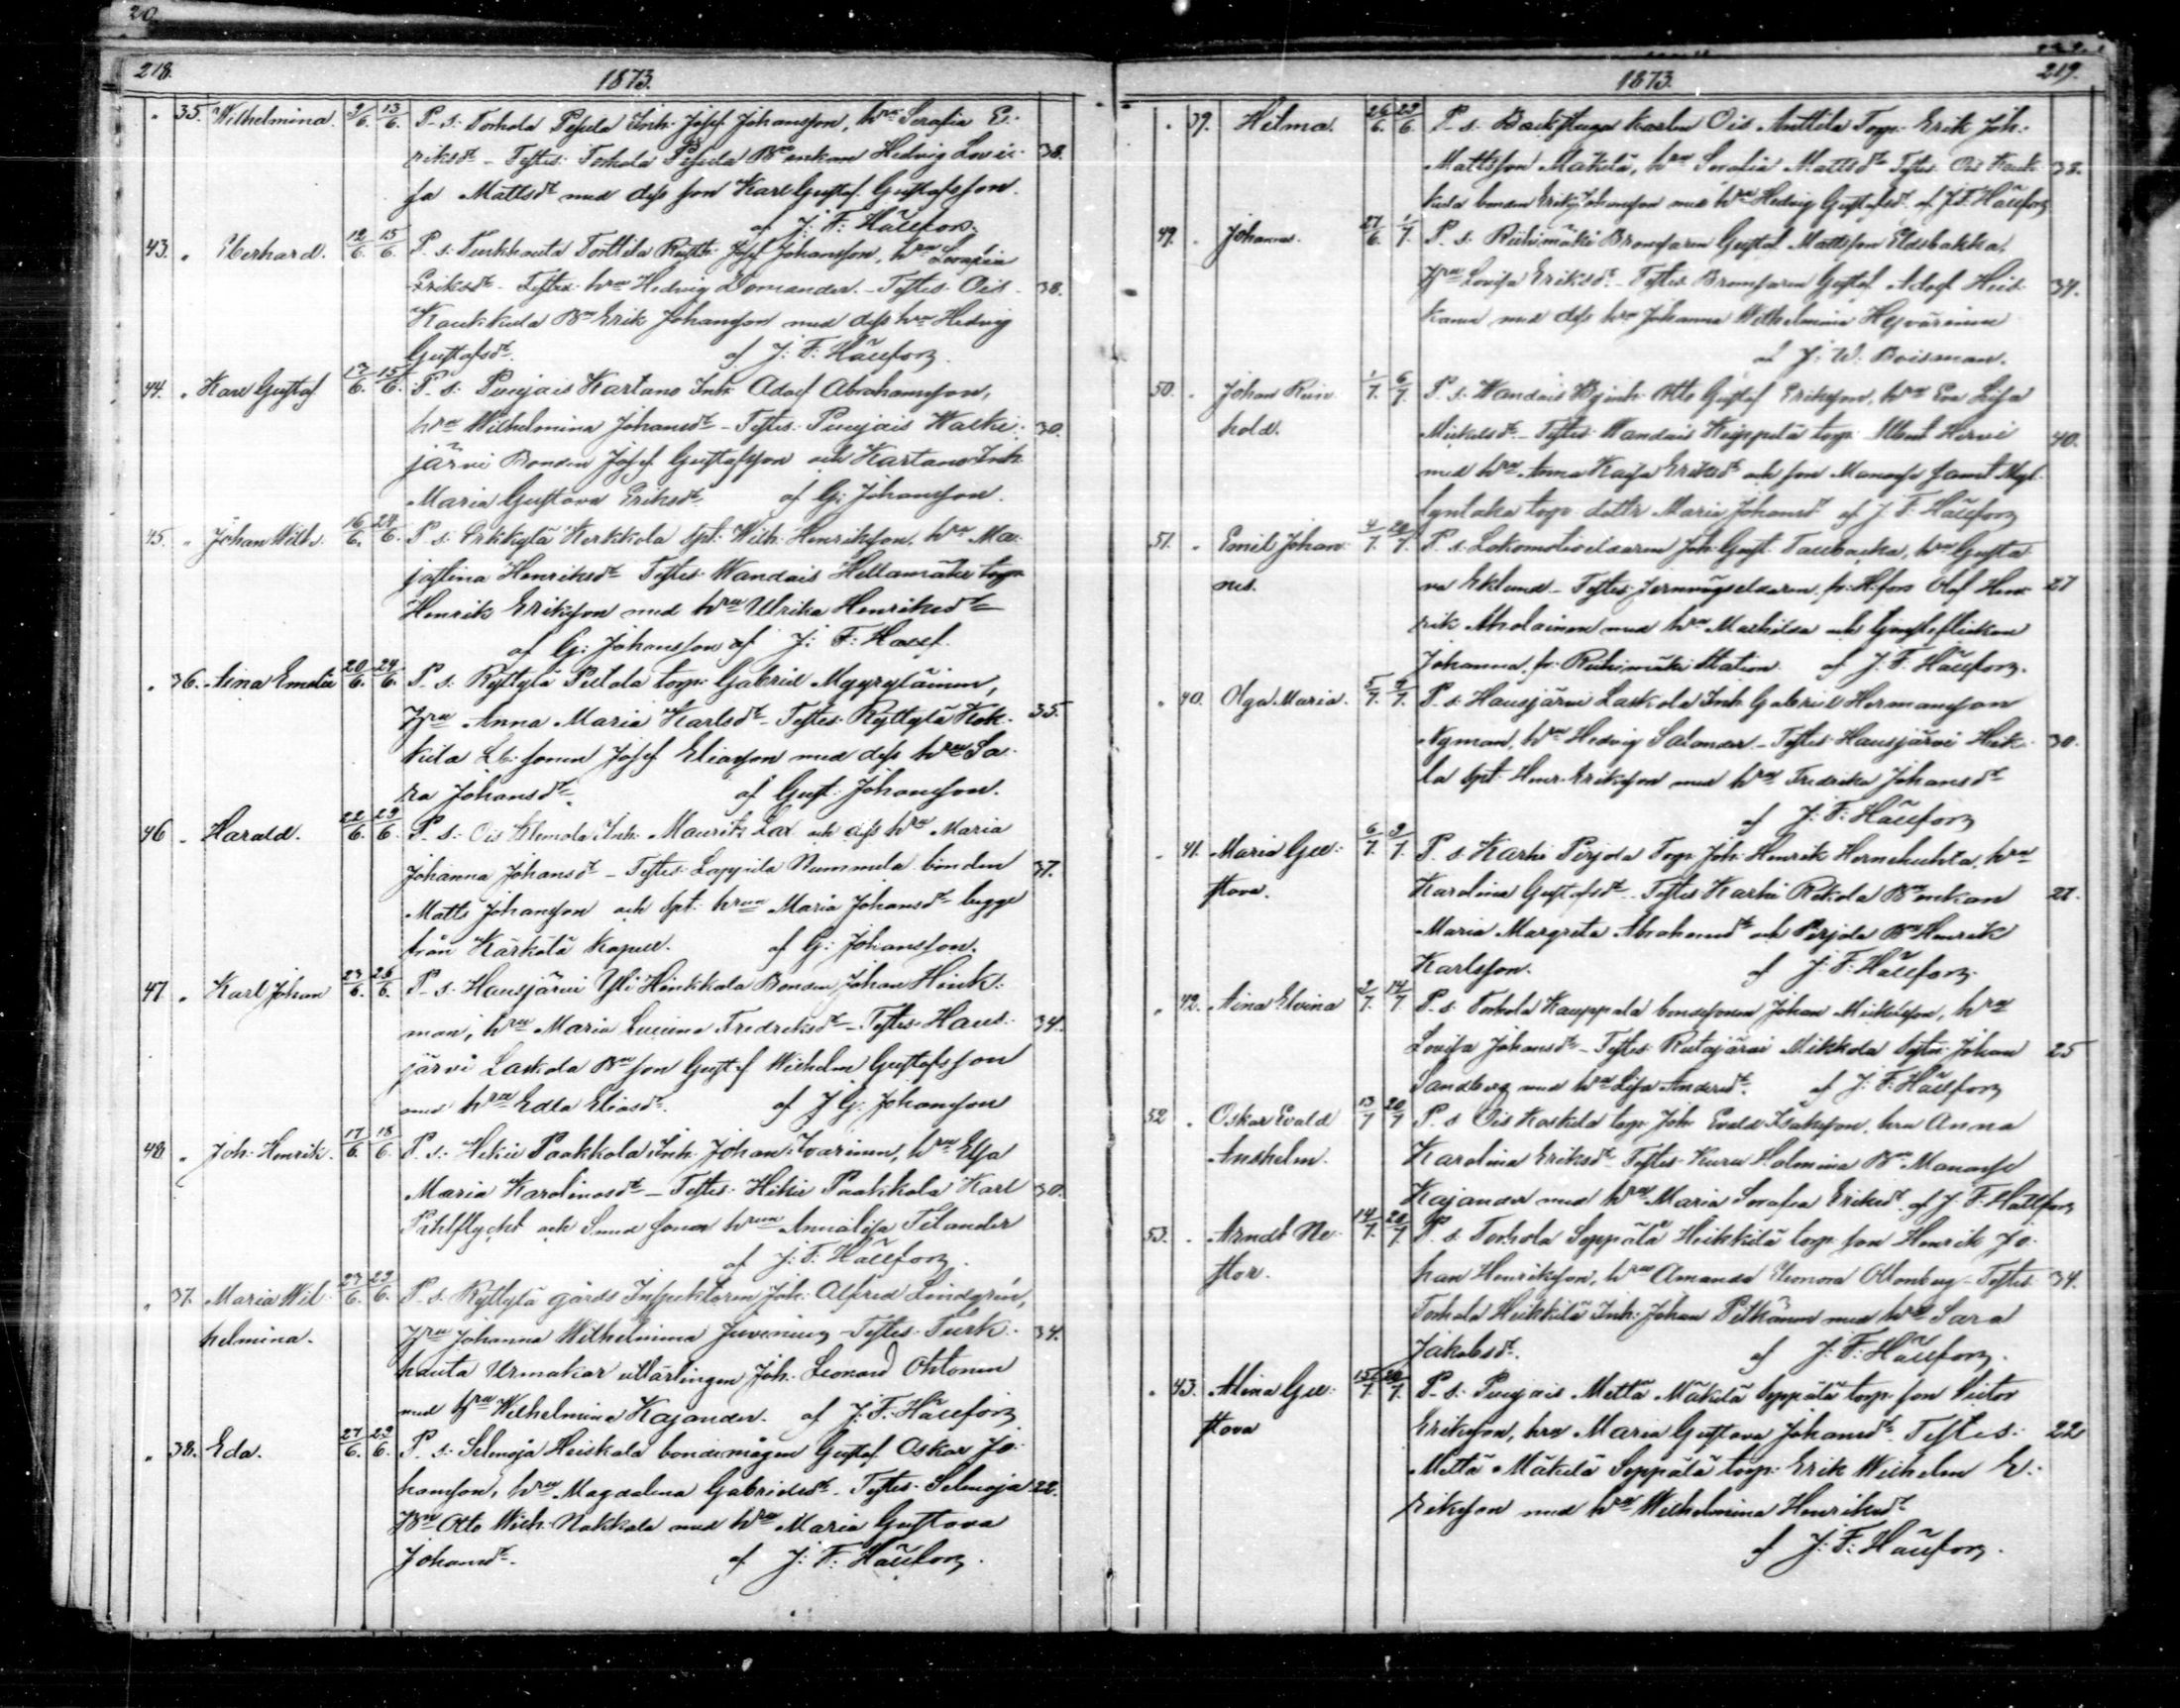 20
218.
1873.
35. Wilhelmina. 9/6. 13/6. P. s. Torhola Pesula Inh. Josef Johansson, hru Serafia E-
riksdr – Testes: Torhola Pesula Benkan Hedvig Lovi- 38.
sa Mattsdr med dess son Karl Gustaf Gustafsson.
af J: F: Hällfors.
43. Eberhard. 12/6. 15/6. P. s: Turkhauta Torttila Josef Johansson, hru
Eriksdr – Testes: hru Hedvig Domander. – Testes: Ois 38.
Kaukkula Bn Erik Johansson med dess hru Hedvig
Gustafsdr. af J: F: Hällfors.
44. Karl Gustaf 13/6. 15/6. P. s: Puujais Kartano Inh. Adolf Abrahamsson,
hru Wilhelmina Johansdr – Testes: Puujais Walke- 30.
järvi Bonden Josef Gustafsson och Kartano Inh.
Maria Gustava Eriksdr af G: Johansson.
45. Johan Wilh. 16/6. 24/6. P. s: Erkkylä Kerkkola spt. Wilh. Henriksson, hru Ma-
jastina Henriksdr Testes: Wandais Hellamäki torp.
Henrik Eriksson med hru Ulrika Henriksdr
af G: Johansson af J: F: Hällf.
36. Aina Emelie 20/6. 24/6. P. s: Ryttylä Pietola torp: Gabriel Myyryläinen,
Hru Anna Maria Karlsdr – Testes: Ryttylä Kok- 35.
kila Lb: sonen Josef Eliasson med dess hru Sa-
ra Johansdr. af Gust: Johansson.
46 Harald. 22/6. 23/6. P. s: Ois Klemola Inh. Maurits Lax och dess hru Maria
Johanna Johansdr – Testes: Lappila Nummela bonden 37.
Matts Johansson och spt: hrun Maria Johansdr begge
från Kärkölä Kapell. af G: Johansson.
47 Karl Johan 23/6. 26/6. P. s: Hausjärvi Yli Hinkkala Bonden Johan Hink-
man, hru Maria Fredriksdr – Testes: Haus- 34.
järvi Laskola Bn son Gustaf Wilhelm Gustafsson
med hru Edla Eliasdr. af J G: Johansson
48 Joh: Henrik. 17/6. 18/6. P. s: Hikie Paakkola Inh. Johan Ivarinen, hru Elsa
Maria Karolinasdr – Testes: Hikie Paakkola Karl 30.
Pihlflycht och Smed sonen hrun Annalisa Telander
af J: F: Hällfors.
37. Maria Wil- 27/6. 29/6. P. s: Ryttylä gårds Inspektoren Joh: Alfred Lindgren,
helmina. Hru Johanna Wilhelmina Juvenius – Testes: Turk- 34.
hauta Urmakar utlärlingen Joh: Leonard Ohtonen
med hru Wilhelmina Kajander. af J: F: Hällfors
38. Eda. 27/6. 29/6. P. s: Selmoja Heiskala bondemågen Gustaf Oskar Jo-
hansson, hru Magdalena Gabrielsdr. Testes: Selmoja 22.
Bn Otto Wilh. Nokkala med hru Maria Gustava
Johansdr. af J: F: Hällfors.
1873.
219.
39. Hilma. 26/6. 29/6. P. s: Backstuga karlen Ois Anttila Torp: Erik Joh:
Mattsson Mäkelä, hru Serafia Mattsdr Testes: Ois Kauk- 38.
kula bonden Erik Johansson med hru Hedvig Gustafsdr. af J: F: Hällfors
49. Johannes. 27/6. 1/7. P. s: Riihimäki Bromsaren Gustaf Mattsson
Hru Lovisa Eriksdr – Testes: Bromsaren Gustaf Adolf Heis- 34.
kanen med dess hru Johanna Wilhelmina
af J: W: Boisman.
50. Johan Rein- 1/7. 6/7. P. s: Wandais Inh: Otto Gustaf Eriksson, hru Eva Lisa
hold. Mickelsdr – Testes: Wandais torp: Hervi 40.
med hru Anna Kaisa Eriksdr och son Manasse samt
torp. dottr Maria Johansdr af J: F: Hällfors
51. Emil Johan- 4/7. 20/7. P. s: Lokomotiveldaren Joh: Gust: hru Gusta-
nes. va Eklund. – Testes: Jernvägseldaren fr: H:fors Olof Hen- 27
rik med hru Mathilda och tjensteflickan
Johanna, fr: Riihimäki Station. af J: F: Hällfors.
40. Olga Maria. 5/7. 9/7. P. s: Hausjärvi Laskola Inh. Gabriel Hermansson
Nyman, hru Hedvig Salander. – Testes: Hausjärvi Heik- 30.
la spt. Henr. Eriksson med hru Fredrika Johansdr
af J: F: Hällfors
41. Maria Gu- 6/7. 9/7. P. s: Karhi Perjola Torp. Joh: Henrik Hernehuhta, hru
stava. Karolina Gustafsdr. Testes: Karhi Rekola Bn enkan 21.
Maria Margreta Abrahamsdr och Perjola Bn Henrik
Karlsson. af J: F: Hällfors.
42. Aina Elvina 9/7. 14/7. P. s: Torhola Kauppala bondsonen Johan Mickelsson, hru
Lovisa Johansdr – Testes: Rutajärvi Mikkola Johan 25
Sandberg med hru Lisa Andersdr. af J: F: Hällfors
52 Oskar Evald 13/7 20/7 P. s: Ois Koskela torp. Joh: Evald Isaksson, hru Anna
Anshelm. Karolina Eriksdr – Testes: Kuru Salmina Bn Manasse
Kajander med hru Maria Serafia Eriksdr. af J: F: Hällfors
53. Arndt Ne- 14/7. 20/7. P. s: Torhola Seppälä Heikkilä torp. son Henrik Jo-
stor. han Henriksson, hru Amanda Eleonora Ottonberg – Testes: 34.
Torhola Heikkilä Inh: Johan Pitkänen med hru Sara
Jakobsdr. af J: F: Hällfors.
43. Alina Gu- 15/7. 20/7. P. s: Puujais Mettä Mäkelä Seppälä torp. son Victor
stava Eriksson, hru Maria Gustava Johansdr. Testes: 22
Mettä Mäkelä Seppälä torp: Erik Wilhelm E-
riksson med hru Wilhelmina Henriksdr
af J: F: Hällfors.